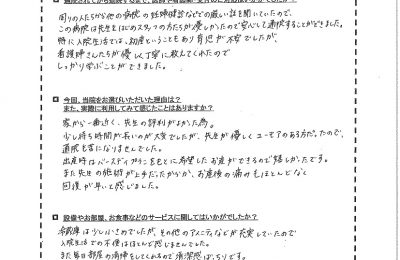 周りの人たちから他の病院の妊婦検診などの厳しい話を聞いていたので、
この病院は先生をはじめスタッフの方たちが優しかったので安心して通院することができました。
特に入院生活では、初産ということもあり育児が不安でしたが、
看護師さんたちが優しく丁寧に教えてくれたので
しっかり学ぶことができました。
今回、当院をお選びいただいた理由は?
また、実際に利用してみて感じたことはありますか?
家から一番近く、先生の評判がよかった為。
少し待ち時間が長いのが大変でしたが、先生が優しくユーモアのある方だったので、
通院も苦になりませんでした。
出産時はバースディプランをもとに希望したお産ができるので嬉しかったです。
また先生の施術が上手だったからか、お産後の痛みもほとんどなく
回復が早いと感じました。
設備やお部屋、お食事などのサービスに関してはいかがでしたか?
冷蔵庫は少し小さめでしたが、その他のアメニティなどが充実していたので
入院生活での不便はほとんど感じませんでした。
また毎日部屋の清掃をしてくれるので清潔感ばっちりです。